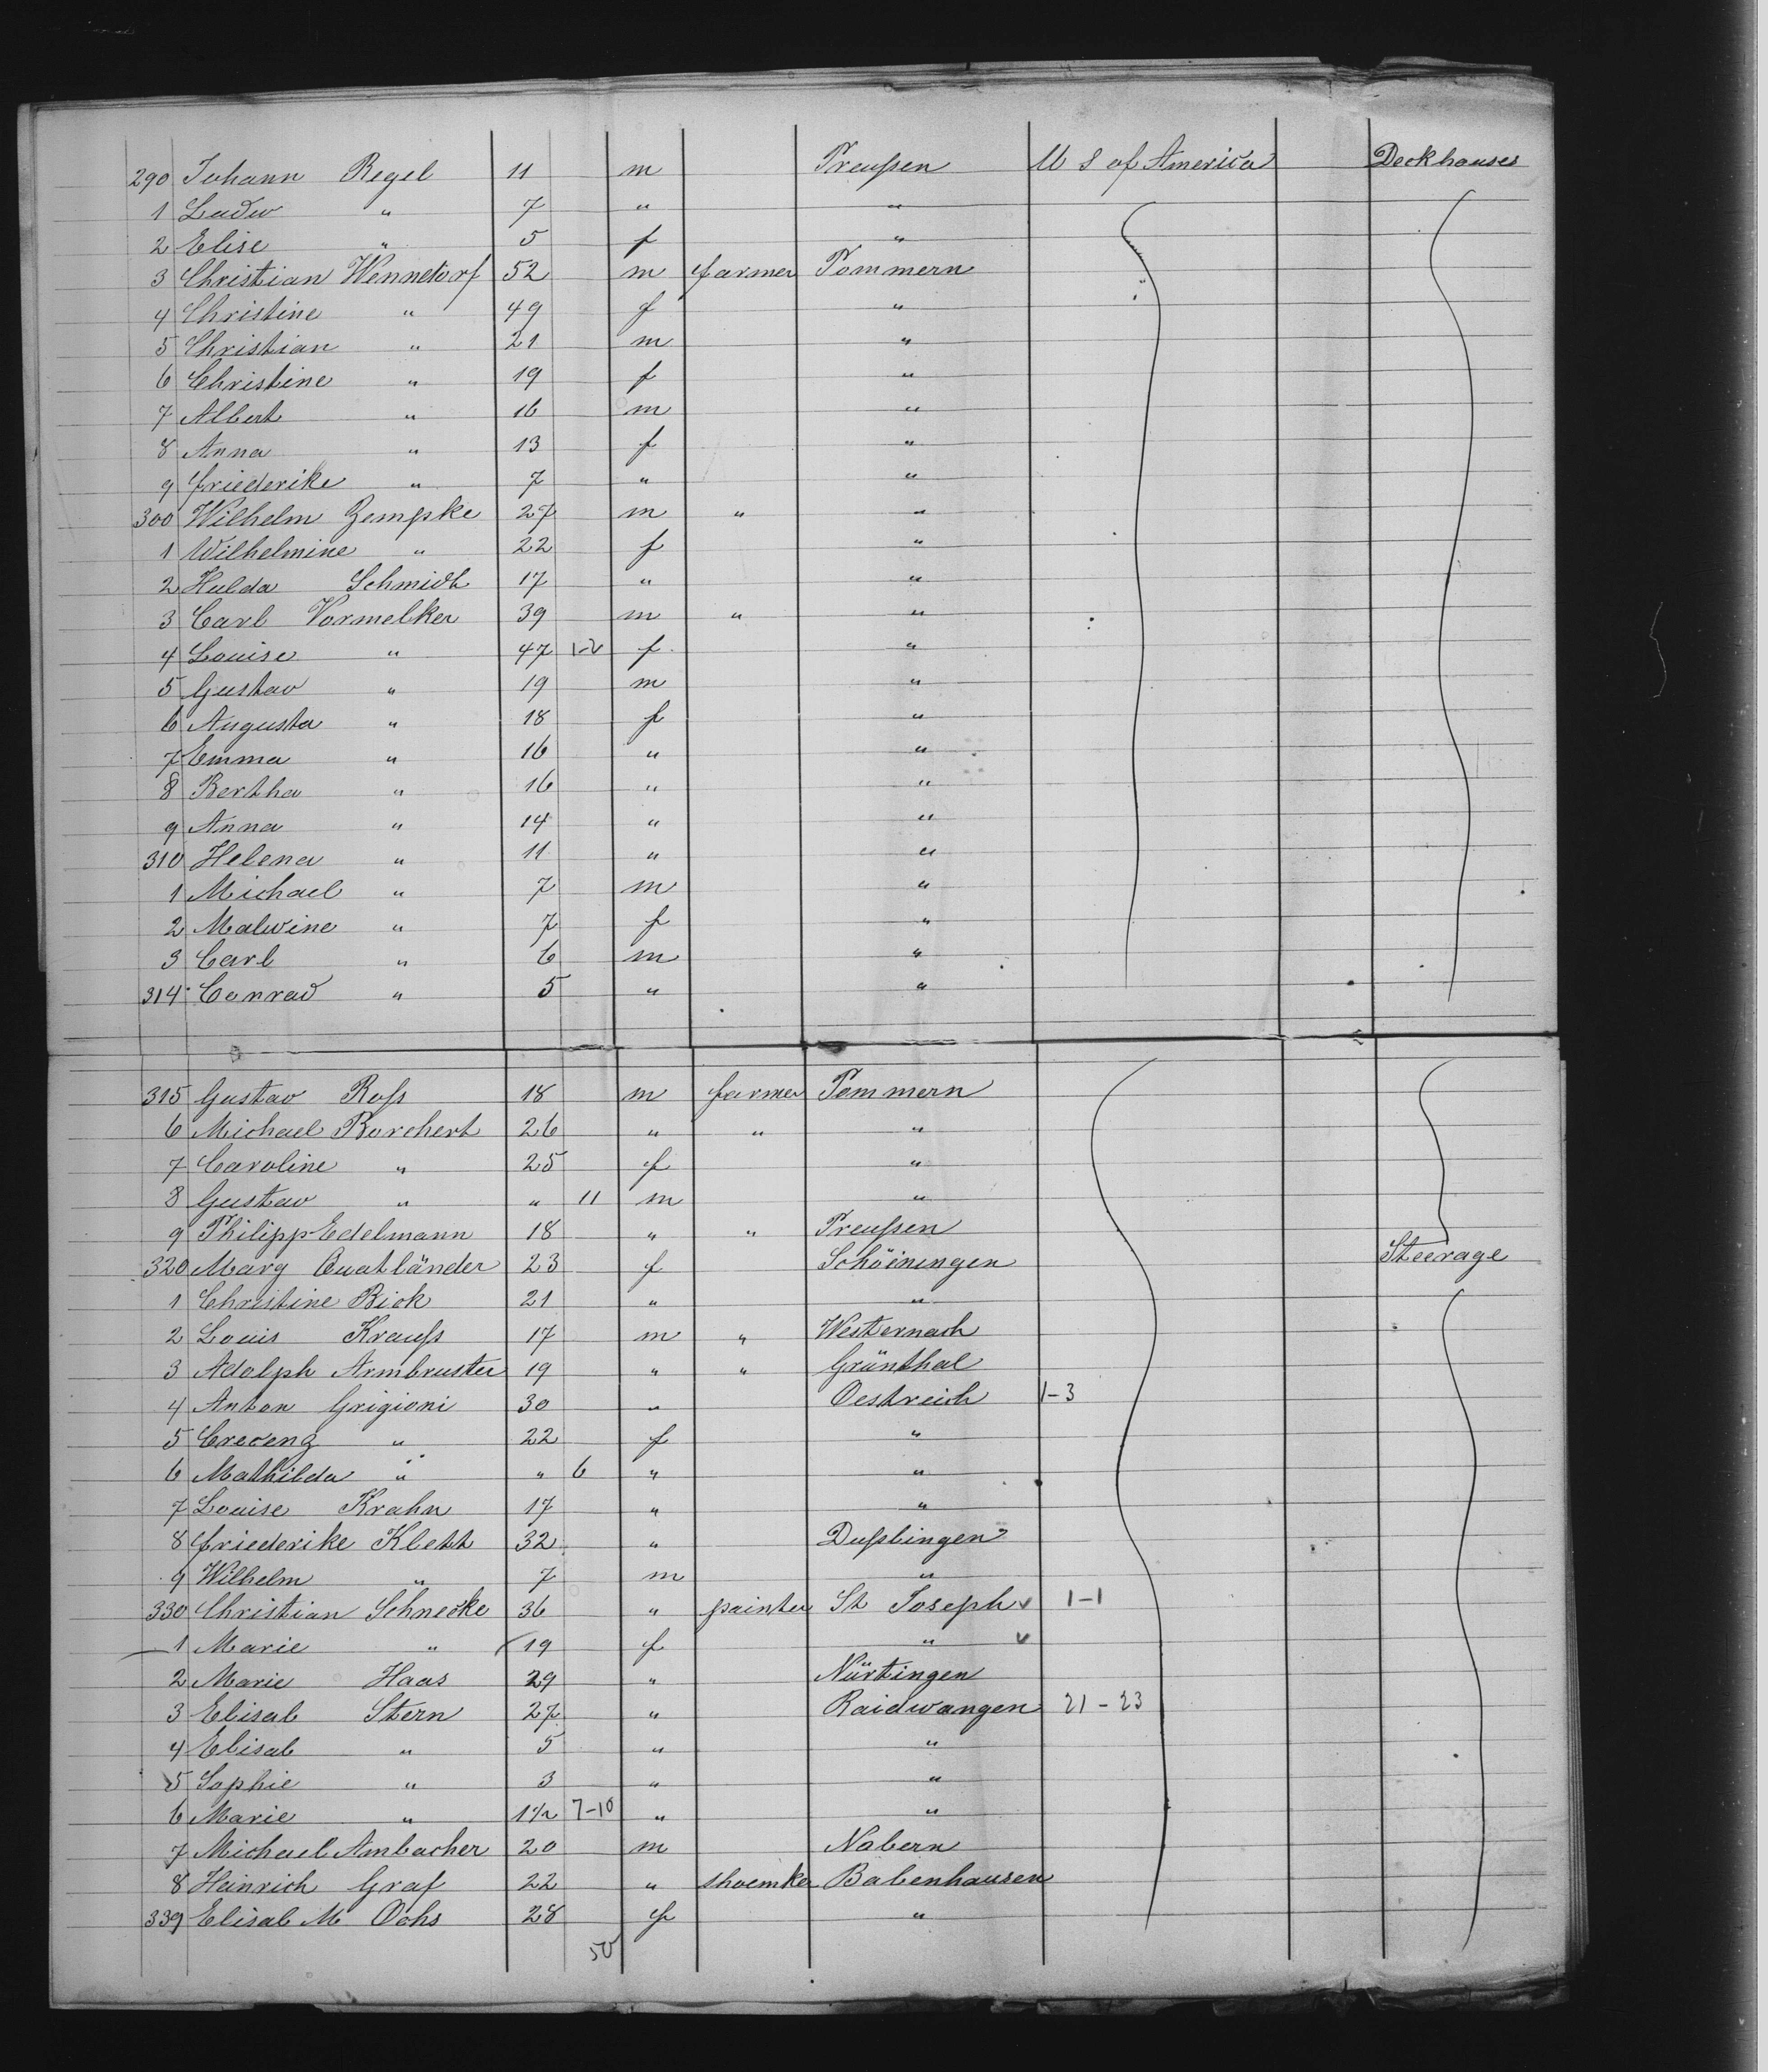 290 Johann Regel 11 m Preußen U S of America Deckhouses
1 Ludw " 7 " "
2 Elise " 5 f "
3 Christian Wennetorf 52 m farmer Pommern
4 Christine " 49 f "
5 Christian " 21 m "
6 Christine " 19 f "
7 Albert " 16 m "
8 Anna " 13 f "
9 Friederike " 7 " "
300 Wilhelm Zempke 27 m " "
1 Wilhelmine " 22 f "
2 Hulda Schmidt 17 " "
3 Carl Vormelker 39 m " "
4 Louise " 47 f "
5 Gustav " 19 m "
6 Augusta " 18 f "
7 Emma " 16 " "
8 Bertha " 16 " "
9 Anna " 14 " "
310 Helena " 11 " "
1 Michael " 7 m "
2 Malwine " 7 f "
3 Carl " 6 m "
314 Conrad " 5 " "
315 Gustav Roß 18 m farmer Pommern
6 Michael Borchert 26 " " "
7 Caroline " 25 f "
8 Gustav " " 11 m "
9 Philipp Edelmann 18 " " Preußen
320 Marg Quatländer 23 f Schöeningen Steerage
1 Christine Bick 21 " "
2 Louis Krauß 17 m " Westernach
3 Adolph Armbruster 19 " " Grünthal
4 Anton Grigioni 30 " Oestreich 1-3
5 Crecenz " 22 f "
6 Mathilda " " 6 " "
7 Louise Krahn 17 " "
8 Friederike Klett 32 " Dußlingen
9 Wilhelm " 7 m "
330 Christian Schnecke 36 " painter St Joseph 1-1
1 Marie " 19 f "
2 Marie Haas 29 " Nürtingen
3 Elisab Stern 27 " Raidwangen 21-23
4 Elisab " 5 " "
5 Sophie " 3 " "
6 Marie " 1½ 7-10 " "
7 Michael Ambacher 20 m Nabern
8 Heinrich Graf 22 " shoemker Babenhausen
339 Elisab M Ochs 28 f "
50